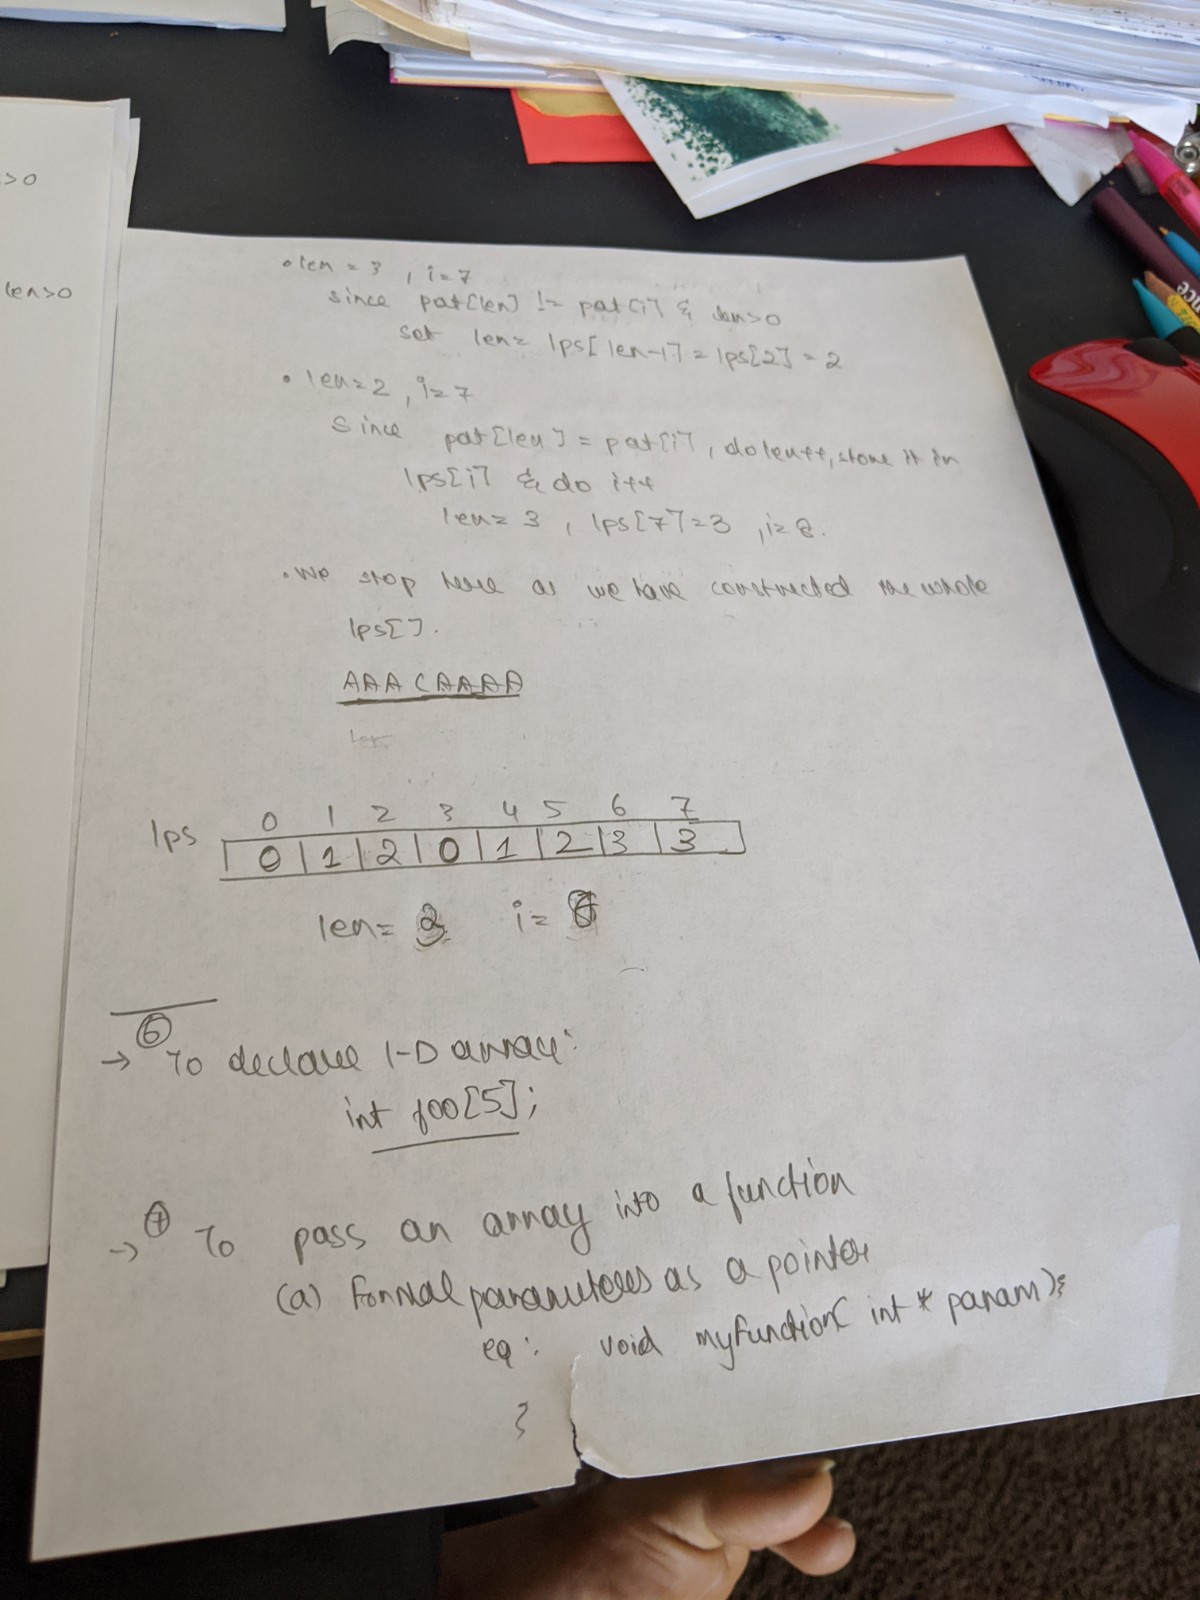 >0
len>0
• len = 3 , i = 7
since pat[len] != pat[i] & len>0
set len = lps[len-1] = lps[2] = 2
• len=2 , i=7
Since pat[len] = pat[i], do len++, store it in
lps[i] & do i++
len = 3 , lps[7]=3 , i=8.
• We stop here as we have constructed the whole
lps[].
AAACAAAA
len
0 1 2 3 4 5 6 7
lps 0 | 1 | 2 | 0 | 1 | 2 | 3 | 3
len= i=
⑥
→ To declare 1-D array:
int foo[5];
→ ⑦ To pass an array into a function
(a) Formal parameters as a pointer
eg: void myFunction( int * param) {
}